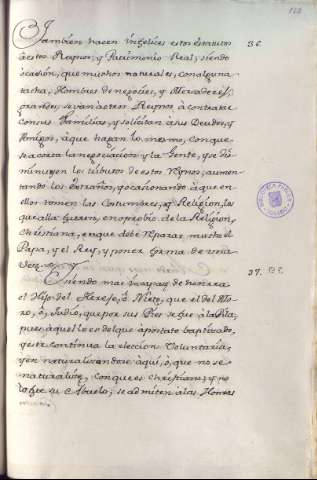 122
Tambien hacen infelices estos Estatutos
36
à estos Reynos, y Patrimonio Real, siendo
ocasion, que muchos naturales, con alguna
tacha, Hombres de negocios, y Mercaderes
grandes, se van à otros Reynos, à contratar
con sus Familias, y solicitan à sus Deudos, y
Amigos, à que hagan lo mesmo, con que
se acorta la negociacion, y la Gente, y se dis-
minuyen los tributos de estos Reynos, aumen-
tando los Estraños, y ocasionando à que en
ellos tomen las Costumbres, y Religion, la
que alla huvieren, en oprobio de la Religion
Christiana, en que debe reparar mucho el
Papa, y el Rey, y poner forma de una
vez.
37.
Siendo mas incapaz de honrra
el Hijo del Herege, ò Nieto, que el del Mo-
ro, ò Judio, que por sus Pies va fue à la Pila,
pues aquel lo es del que apostatò baptizado,
y este continua la eleccion Voluntaria,
y en naturalizandose aqui, ò, que no se
naturalize, con que es Christiano, y no
lo fue su Abuelo, se admiten à las Honras